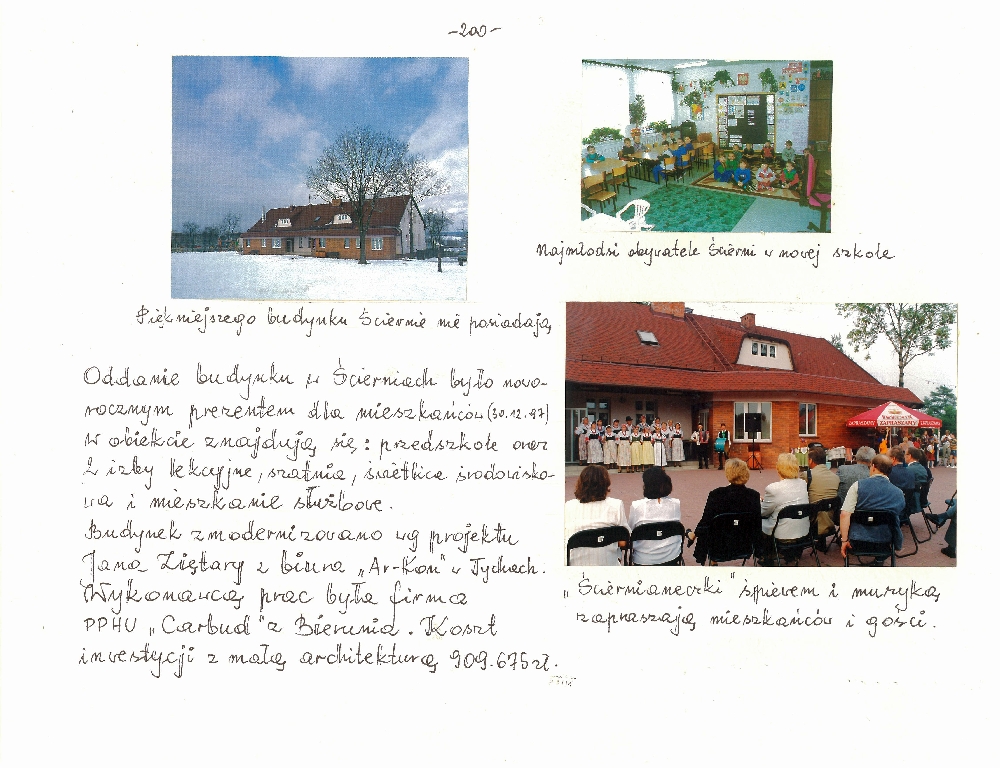 -200-
Najmłodsi obywatele Ścierni w nowej szkole
Piękniejszego budynku Ściernie nie posiadają
Oddanie budynku w Ścierniach było nowo-
rocznym prezentem dla mieszkańców (30.12.97)
W obiekcie znajdują się: przedszkole oraz
2 izby lekcyjne, szatnia, świetlica środowisko-
wa i mieszkanie służbowe.
Budynek zmodernizowano wg projektu
Jana Ziętary z biura „Ar-Kon" w Tychach.
Wykonawcą prac była firma
PPHU „Carbud" z Bierunia. Koszt
inwestycji z małą architekturą 909.675 zł.
ZAPRASZAMY
„Ściernianeczki" śpiewem i muzyką
zapraszają mieszkańców i gości.